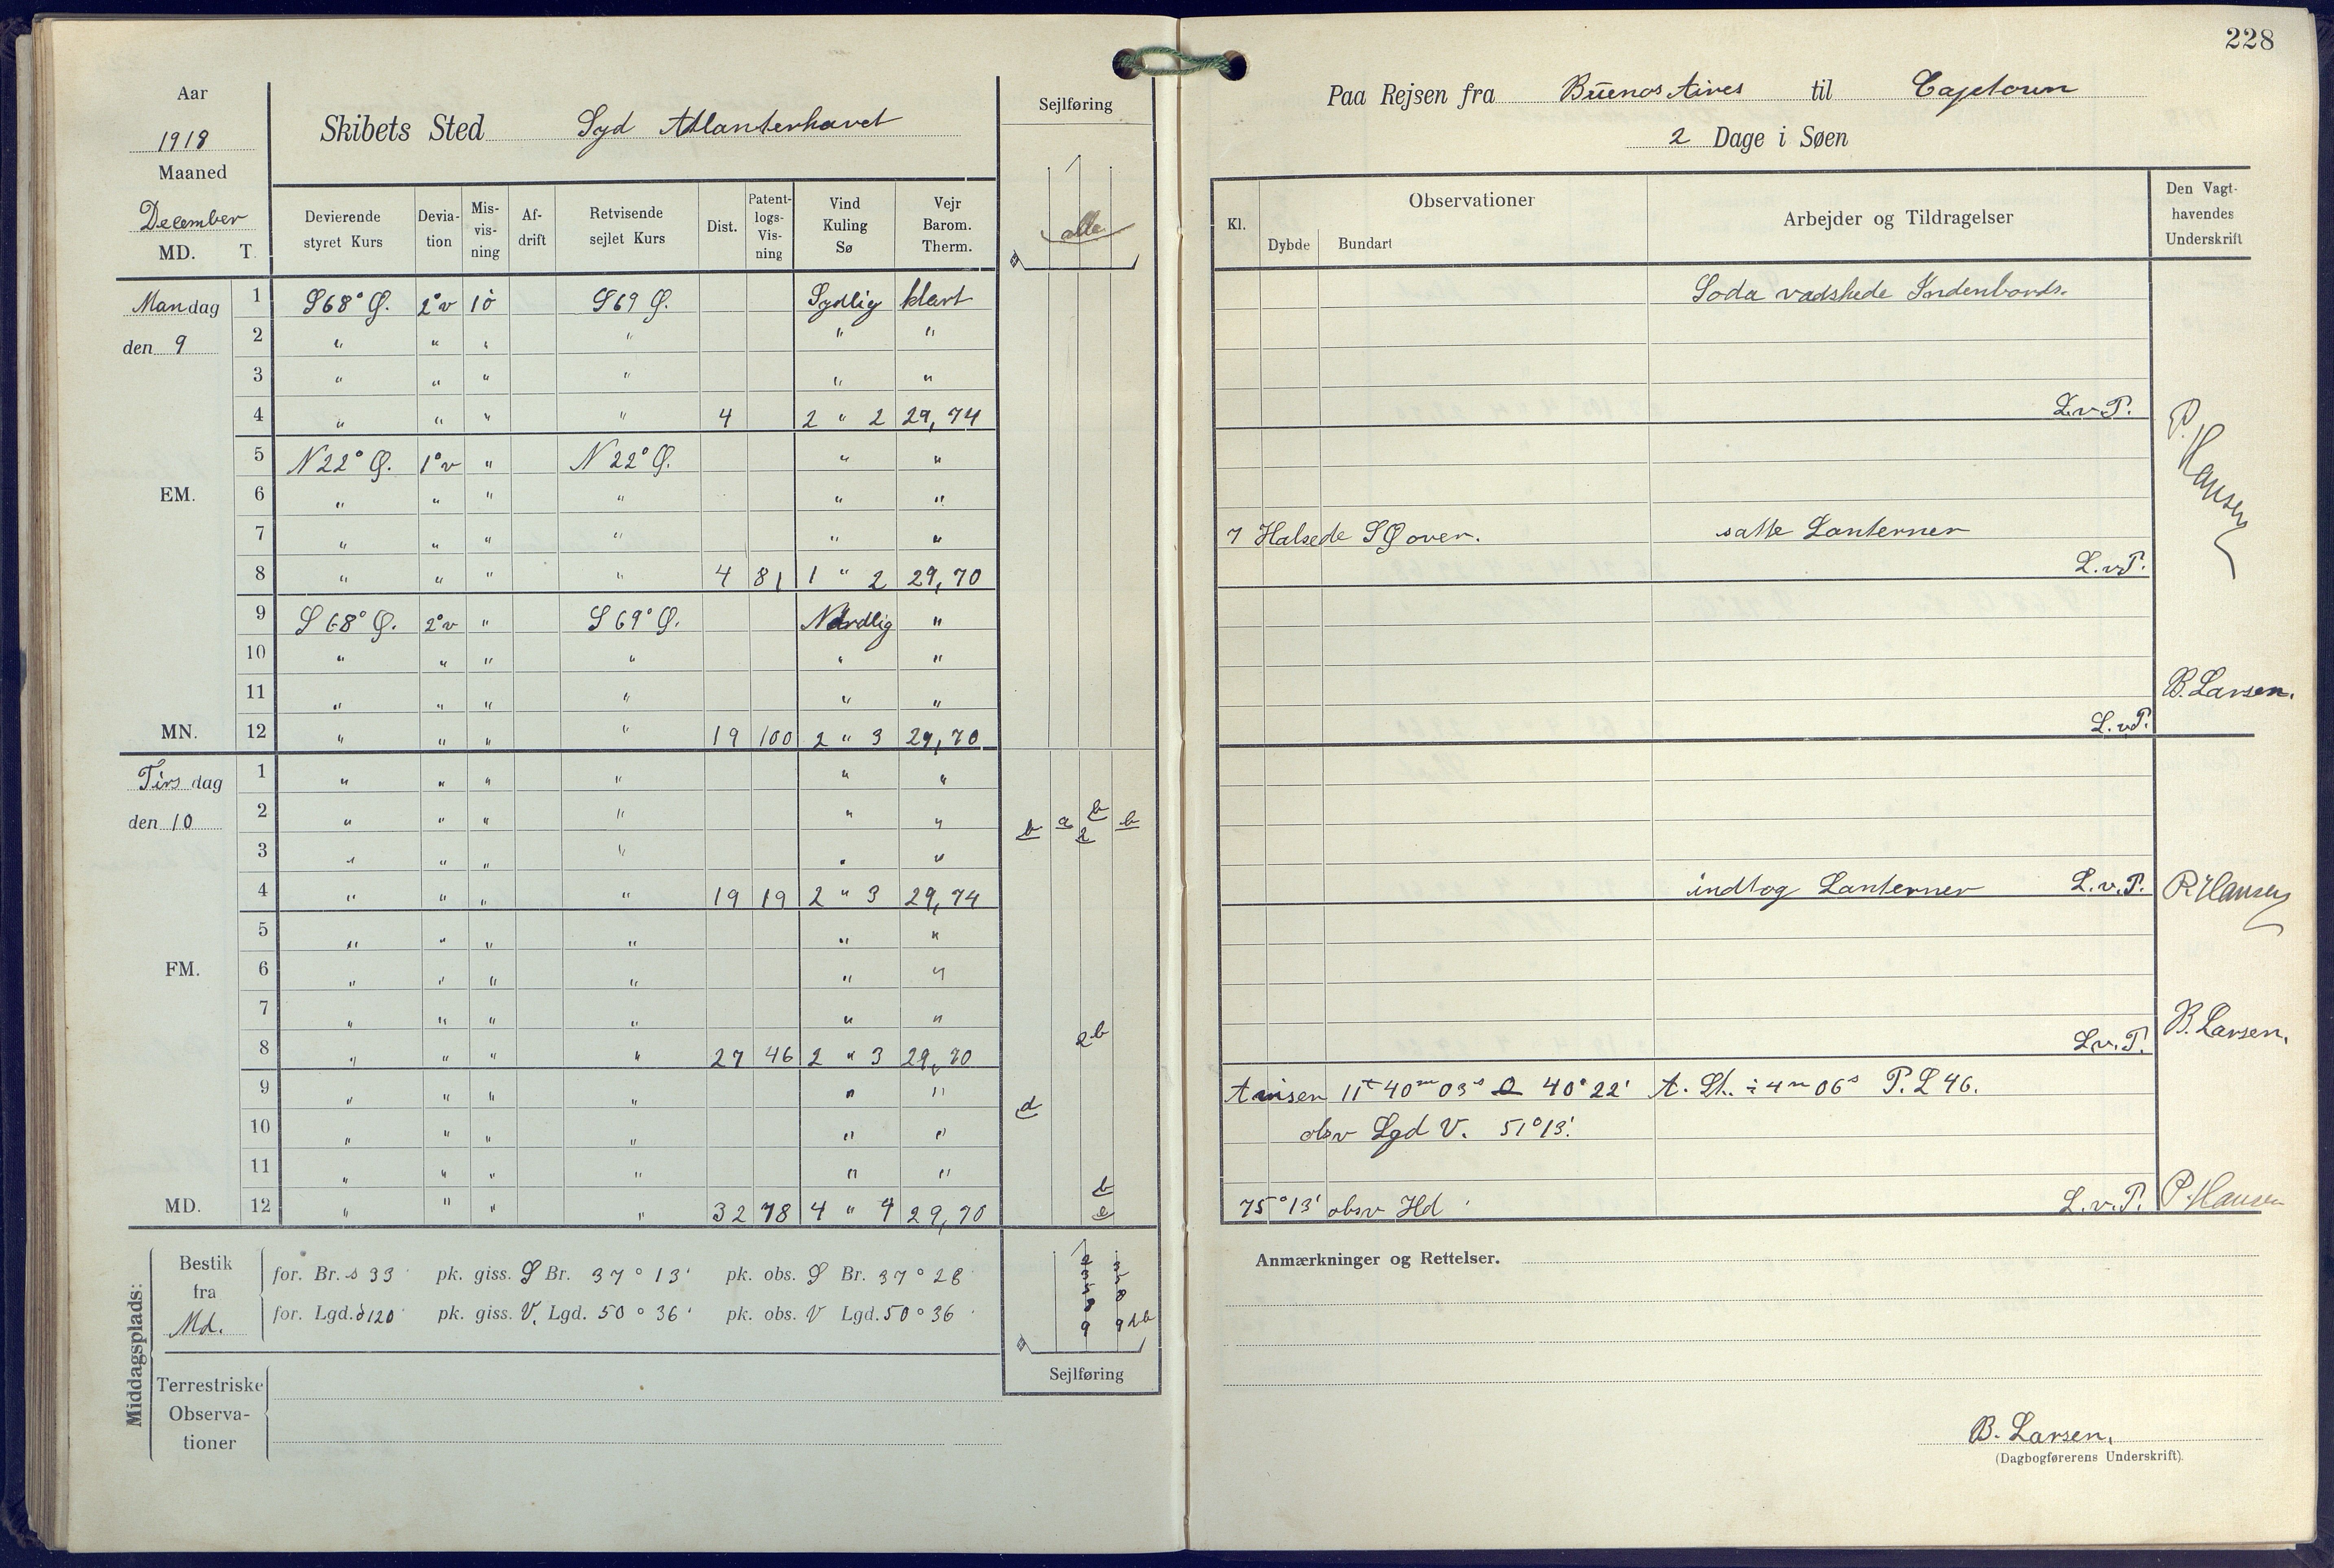 228
Aar
1918
Maaned
December
MD. T.
Skibets Sted Syd Atlanterhavet
Sejlføring
alle
Devierende styret Kurs | Deviation | Misvisning | Afdrift | Retvisende sejlet Kurs | Dist. | Patentlogs-Visning | Vind Kuling Sø | Vejr Barom. Therm.
Mandag 1 S 68° Ø. 2°v 10 S 69 Ø. Sydlig klart
den 9 2 " " " " " "
3 " " " " " "
4 " " " " 4 2 " 2 29,74
5 N 22° Ø. 1°v " N 22° Ø. " "
EM. 6 " " " " " "
7 " " " " " "
8 " " " " 4 81 1 " 2 29,70
9 S 68° Ø. 2°v " S 69° Ø. Nordlig "
10 " " " " " "
11 " " " " " "
MN. 12 " " " " 19 100 2 " 3 29,70
Tirsdag 1 " " " " " "
den 10 2 " " " " " " b a b 2 b
3 " " " " " "
4 " " " " 19 19 2 " 3 29,74
5 " " " " " "
FM. 6 " " " " " "
7 " " " " " "
8 " " " " 27 46 2 " 3 29,70 2b
9 " " " " " " d
10 " " " " " "
11 " " " " " "
MD. 12 " " " " 32 78 4 " 4 29,70 b
Middagsplads:
Bestik fra Md.
for. Br. s 33' pk. giss. S Br. 37° 13' pk. obs. S Br. 37° 28'
for. Lgd. ö 120' pk. giss. V. Lgd. 50° 36' pk. obs. V Lgd. 50° 36'
Terrestriske Observationer
Sejlføring
Paa Rejsen fra Buenos Aires til Capetown
2 Dage i Søen
Kl. | Observationer | Dybde | Bundart | Arbejder og Tildragelser | Den Vagthavendes Underskrift
Soda vadskede Indenbords.
L.v.P.
P. Hansen
7 Halsede SØ over. satte Lanterner
L.v.P.
B. Larsen.
L.v.P.
indtog Lanterner L.v.P. P. Hansen
B. Larsen.
L.v.P.
11 40m 03s 40° 22' A. St. ÷ 4m 06s P. L 46.
obsv Lgd V. 51° 13'.
75° 13' obsv Hd L.v.P. P. Hansen
Anmærkninger og Rettelser.
B. Larsen.
(Dagbogførerens Underskrift).